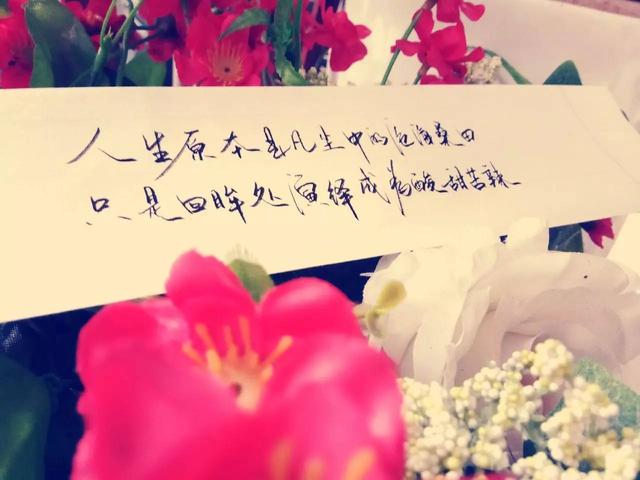 人生原本是凡尘中的沧海桑田
只是回眸处演绎成为酸甜苦辣